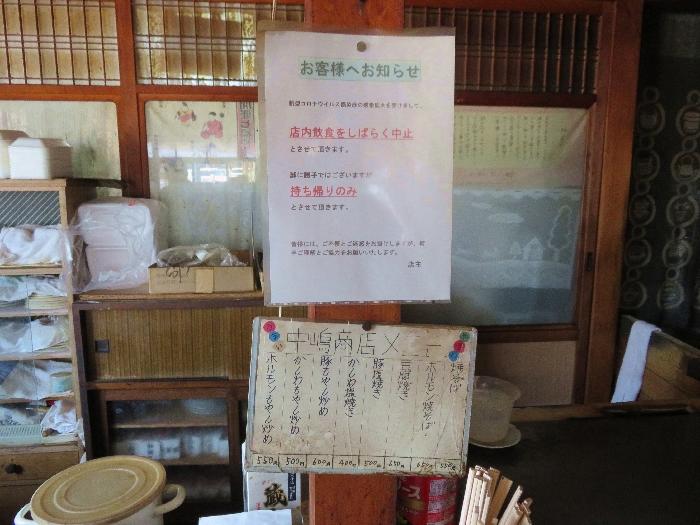 お客様へお知らせ
新型コロナウイルス感染症の感染拡大を受けまして、
店内飲食をしばらく中止
とさせて頂きます。
誠に勝手ではございますが
持ち帰りのみ
とさせて頂きます。
皆様には、ご不便とご迷惑をお掛けしますが、何
卒ご理解とご協力をお願いいたします。
店主
中嶋商店メニュー
焼そば 550
ホルモン焼そば 650
豚塩焼き 500
かしわ塩焼き 400
豚もやし炒め 600
かしわもやし炒め 500
ホルモンもやし炒め 550
蔵
ース